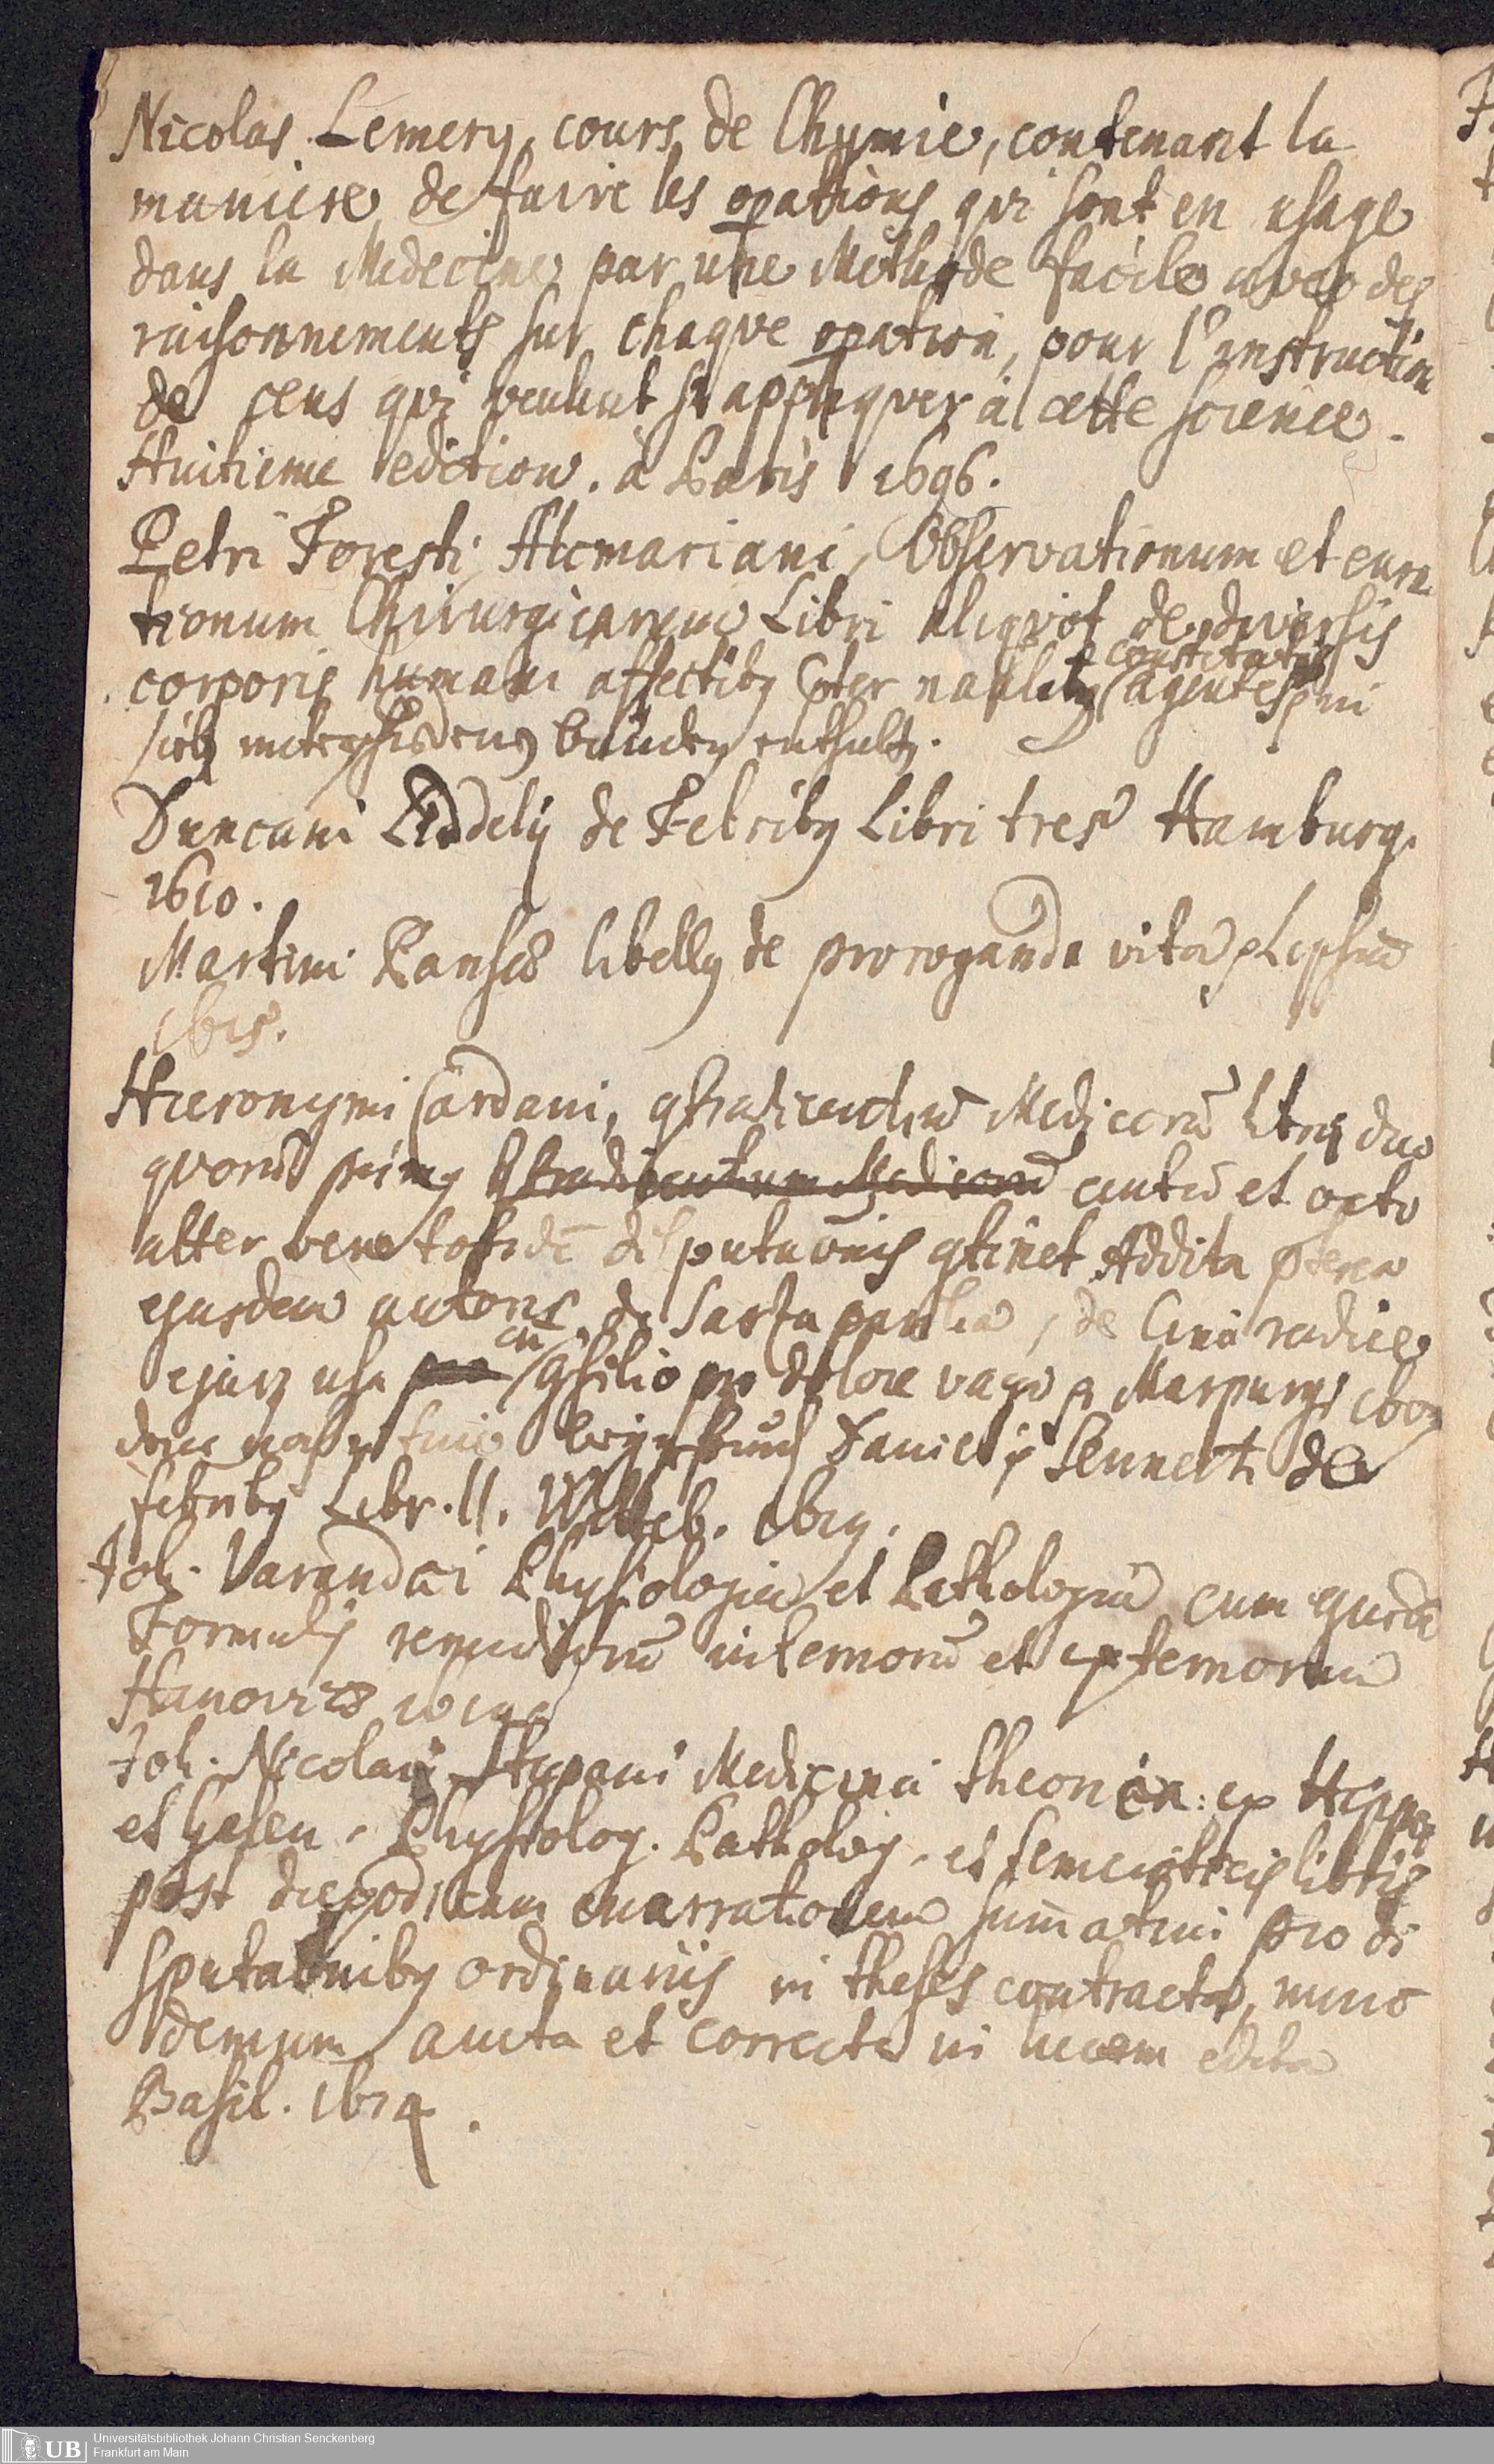 Nicolas Lemery, cours de Chymie, contenant la
maniere de faire les opations qvi sont en usage
dans la Medecine, par une Methode facile avec des
raisonnements sur chaqve opation, pour l'instruction
de ceus qvi veulent s'appliqver à cette science.
Huitieme edition. à Paris 1696.
Petri Foresti, Alcmariani, Observationum et cura
tionum Chirurgicarum Libri aliqvot de diversis
constitutis
corporis humani affectiby pter naalit agentes, in
sich
Duncani Liddelij de Febriby Libri tres Hamburg.
1610.
Martini Pansæ libelly de proroganda vita, Lipsiæ
1615.
Hieronymi Cardani, 9tradicentiu Medicorū libri duo
qvorū primy centū et octo
alter vero totidē disputaōnis 9tinet Addita pterea
ejusdem autoris de Sarsa parilia, de Cina radice
cū
ejusq usu 9silio pro dolore vago Marpurgi 1607
Danielis Sennerti de
febriby Libr. II. Witteb. 1619.
Joh. Varandæi Physiologia et Pathologia cum ejusdē
Formulis remediorū internorū et externorum
Hanoviæ
Joh. Nicolai Stupani Medicina theorica: ex Hippocr
et Galen. Physiolog. Patholog. et semeioticis libris
post diexodicam enarrationem summatim pro di
sputaōniby ordinariis in theses contracta, nunc
demum aucta et correcta in lucem edita
Basil. 1614.
Universitätsbibliothek Johann Christian Senckenberg
Frankfurt am Main
UB